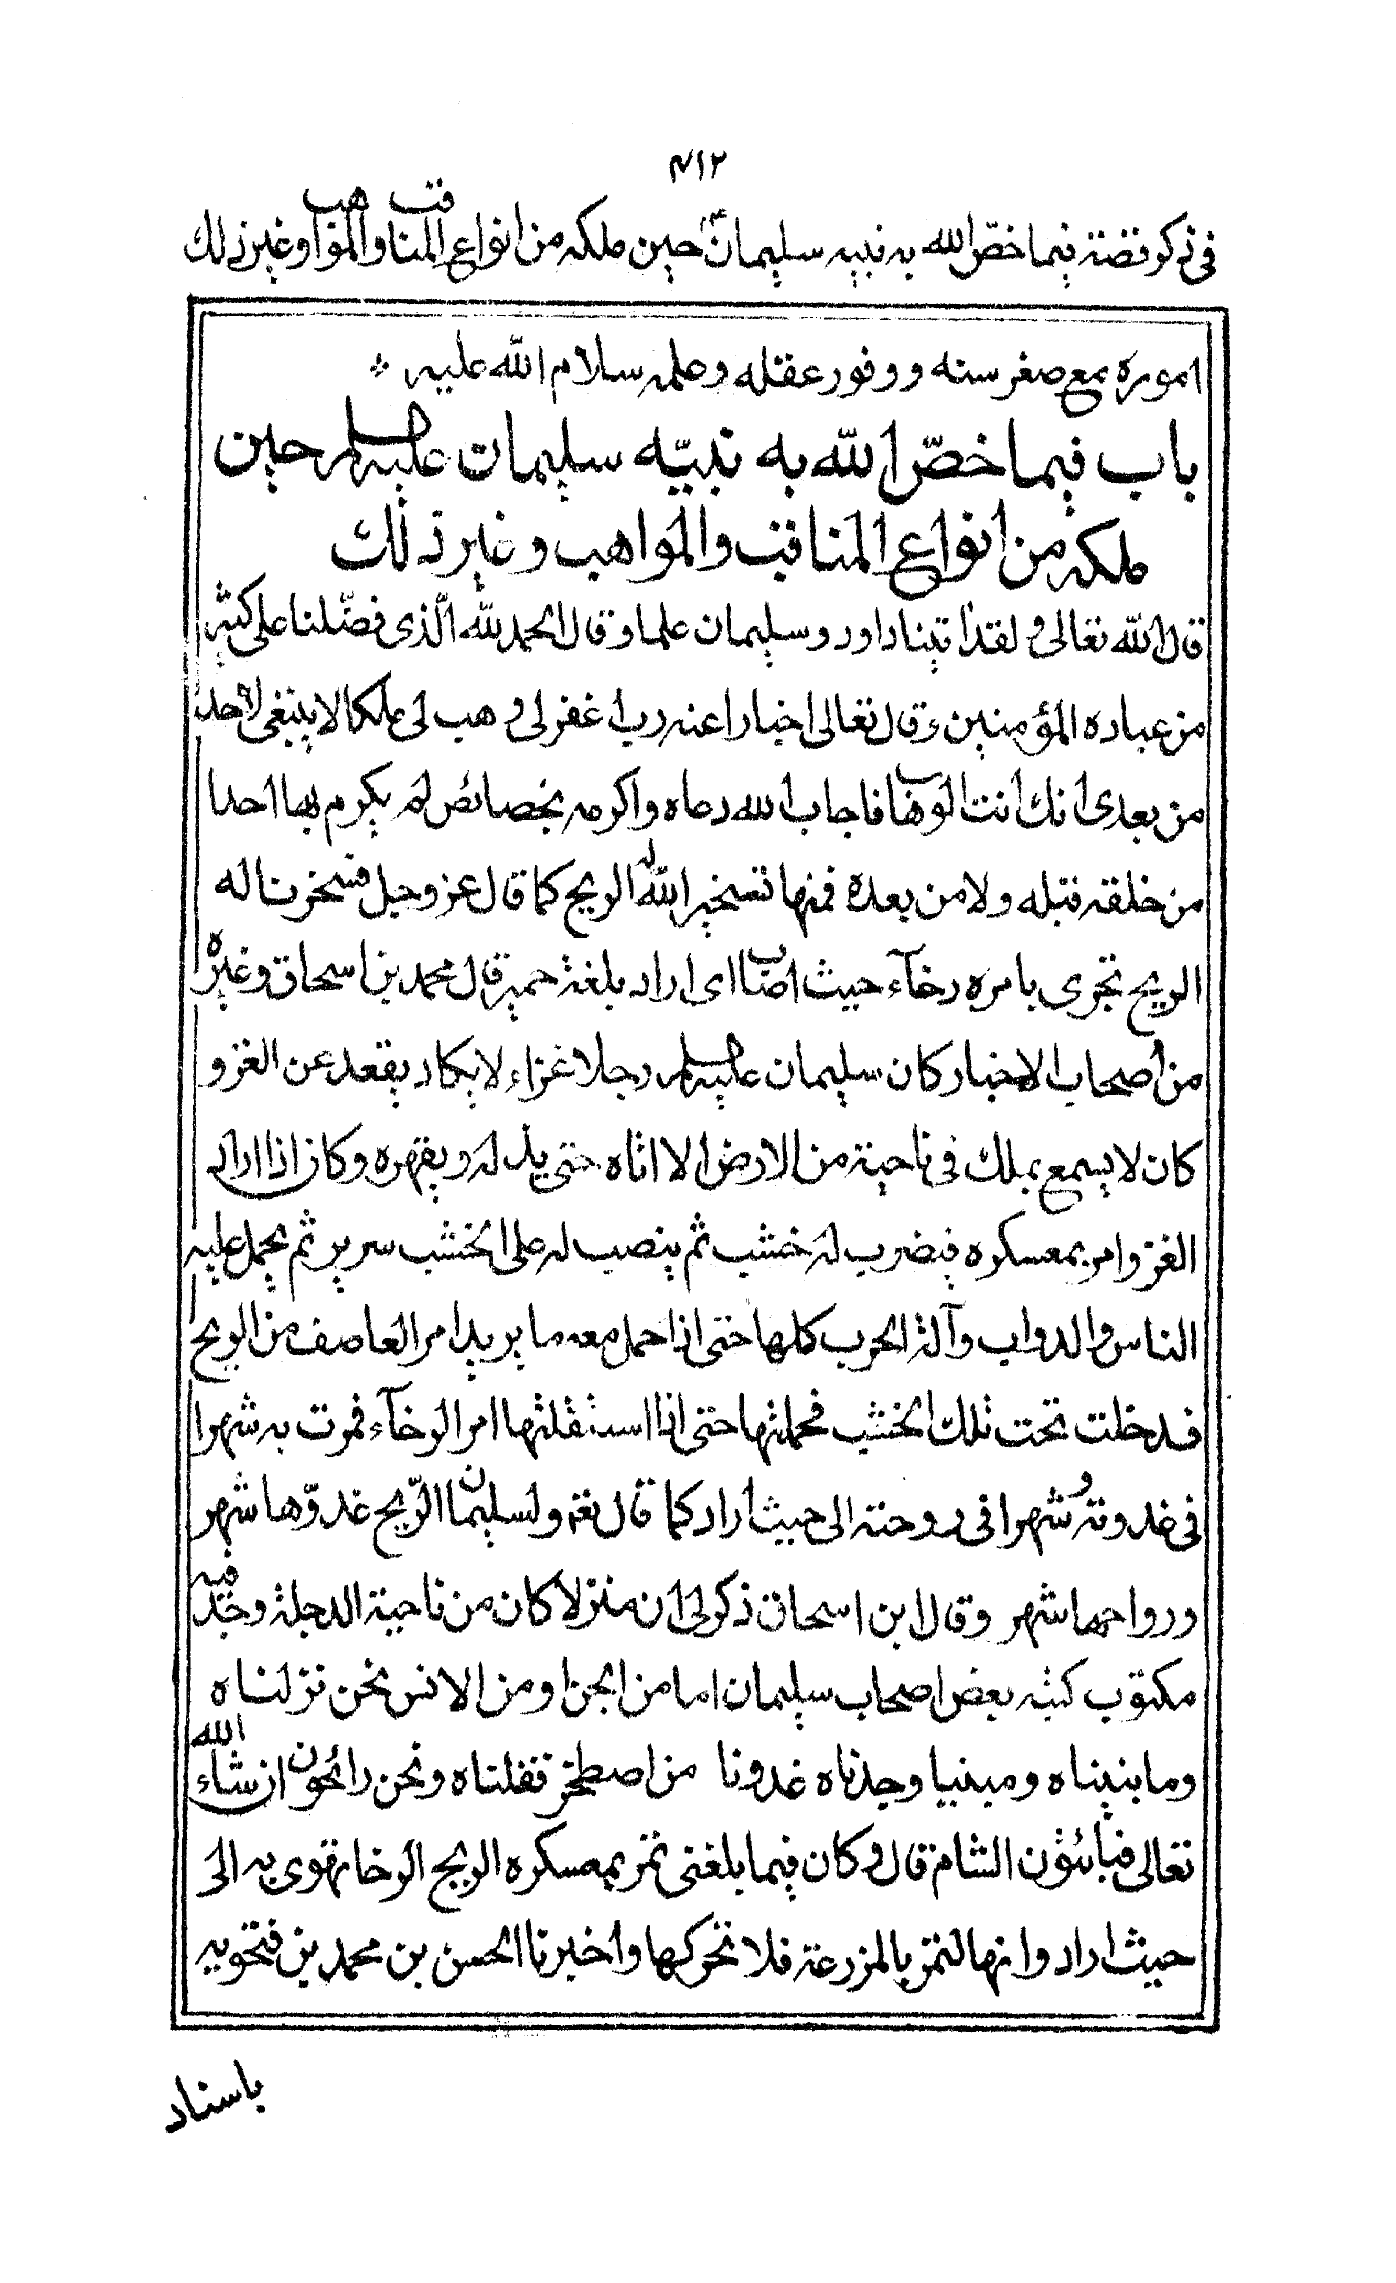 ٤١٢
في ذكر قصة فيما خصّ الله به نبيه سليمانؑ حين ملكه من انواع المناقب والمواهب وغير ذلك
اموره مع صغر سنه ووفور عقله وحلمه سلام الله عليه
باب فيما خصّ الله به نبيّه سليمان عليه السلم حين
ملكه من انواع المناقب والمواهب وغير ذلك
قال الله تعالى ولقد اتينا داود وسليمان علما وقال الحمد لله الّذى فضّلنا على كثير
من عباده المؤمنين وقال تعالى اخبارا عنه رب اغفر لى وهب لى ملكا لا ينبغى لاحد
من بعدى انك انت الوهاب فاجاب الله دعاه واكرمه بخصائص لم يكرم بها احدا
من خلقه قبله ولا من بعده فمنها تسخير الله له الريح كما قال عز وجل فسخرنا له
الريح تجرى بامره رخآء حيث اصاب اى اراد بلغة حمير قال محمد بن اسحاق وغيره
من اصحاب الاخبار كان سليمان عليه السلم رجلا غزاء لا يكاد يقعد عن الغزو
كان لا يسمع بملك فى ناحية من الارض الا اتاه حتى يذله ويقهره وكان اذا اراد
الغزو امر بمعسكره فيضرب له خشب ثم ينصب له على الخشب سرير ثم يحمل عليه
الناس والدواب وآلة الحرب كلها حتى اذا حمل معه ما يريد امر العاصف من الريح
فدخلت تحت تلك الخشب فحملتها حتى اذا استقلتها امر الرخآء فمرت به شهرا
فى غدوته وشهرا فى روحته الى حيث اراد كما قال تعم ولسليمان الرّيح غدوّها شهر
ورواحها شهر وقال ابن اسحاق ذكر لى ان منزلا كان من ناحية الدجلة وجد فيه
مكتوب كتبه بعض اصحاب سليمان اما من الجن او من الانس نحن نزلناه
وما بنيناه ومبنيا وجدناه غدونا من اصطخر فقلناه ونحن رائحون ان شاء الله
تعالى فبائتون الشام قال وكان فيما بلغنى تمر بمعسكره الريح الرخا تهوى به الى
حيث اراد وانها لتمر بالمزرعة فلا تحركها واخبرنا الحسن بن محمد بن فتحويه
باسناد